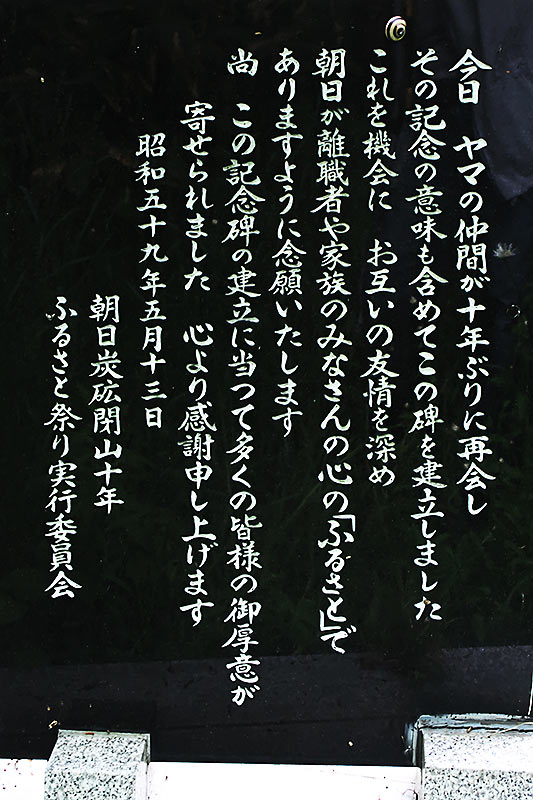 今日　ヤマの仲間が十年ぶりに再会し
その記念の意味も含めてこの碑を建立しました
これを機会に　お互いの友情を深め
朝日が離職者や家族のみなさんの心の「ふるさと」で
ありますように念願いたします
尚　この記念碑の建立に当つて多くの皆様の御厚意が
寄せられました　心より感謝申し上げます
昭和五十九年五月十三日
朝日炭砿閉山十年
ふるさと祭り実行委員会